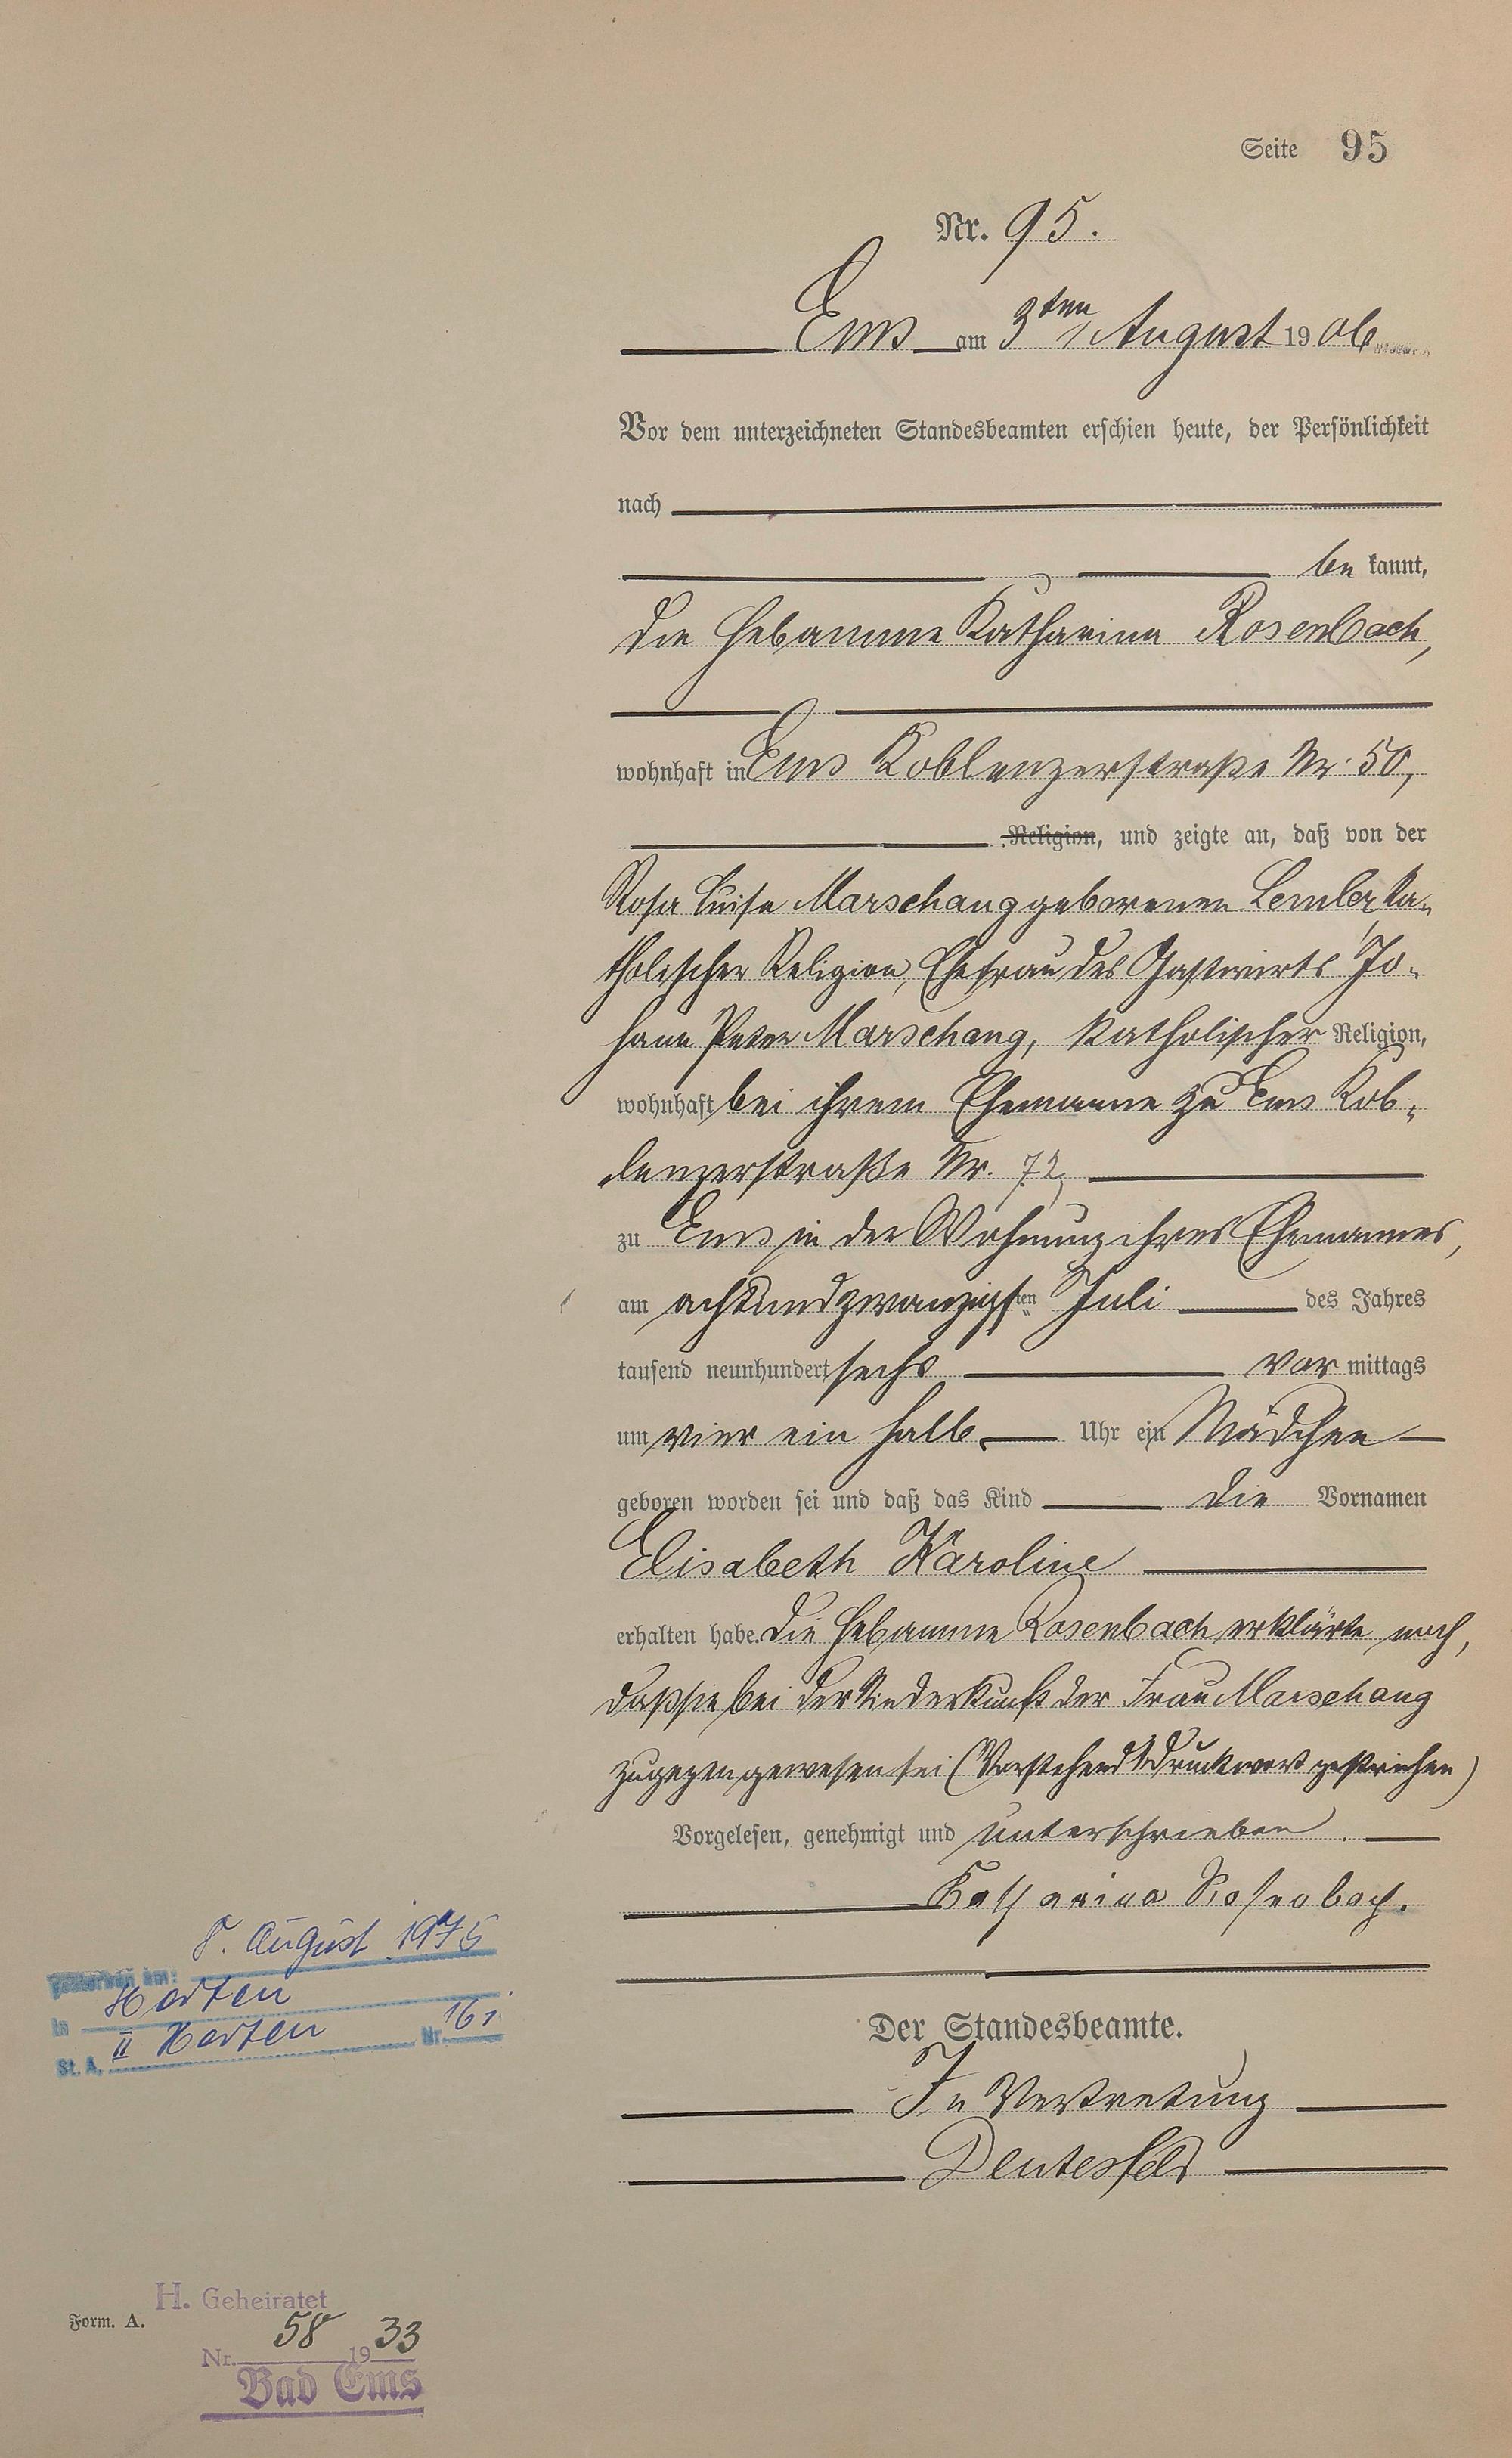 Seite 95
Nr. 95.
Ems am 3ten August 1906
Vor dem unterzeichneten Standesbeamten erschien heute, der Persönlichkeit
nach
be kannt,
die Hebamme Katharina Rosenbach,
wohnhaft in Ems Koblenzerstraße Nr. 50,
Religion, und zeigte an, daß von der
Rosa Luise Marschang geborenen Lemler, ka-
tholischer Religion, Ehefrau des Gastwirts Jo-
hann Peter Marschang, katholischer Religion,
wohnhaft bei ihrem Ehemanne zu Ems Kob-
lenzerstraße Nr. 72,
zu Ems in der Wohnung ihres Ehemannes,
am achtundzwanzigsten Juli des Jahres
tausend neunhundert sechs vor mittags
um vier ein halb Uhr ein Mädchen
geboren worden sei und daß das Kind die Vornamen
Elisabeth Karoline
erhalten habe. Die Hebamme Rosenbach erklärte noch,
daß sie bei der Niederkunft der Frau Marschang
zugegen gewesen sei (Vorstehend 1 Druckwort gestrichen)
Vorgelesen, genehmigt und unterschrieben.
Katharina Rosenbach.
Der Standesbeamte.
In Vertretung
gestorben am: 8. August 1975
in Herten
St. A. II Herten Nr. 161
H. Geheiratet
Form. A.
Nr. 58 1933
Bad Ems